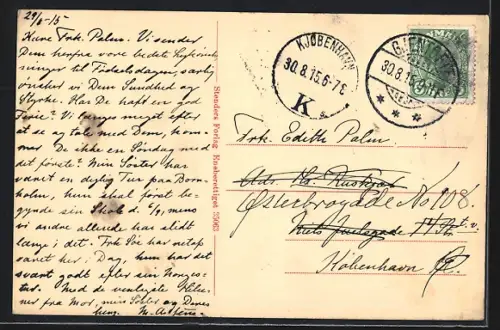 29/8-15
Kære Frk. Palm. Vi sender
Dem herfra vore bedste Lykønsk-
ninger til Fødselsdagen, særlig
ønsker vi Dem Sundhed og
Styrke. Har De haft en god
Ferie? Vi længes meget efter
at se og tale med Dem, kom-
mer De ikke en Søndag med
det første? Min Søster har
været en dejlig Tur paa Born-
holm, hun skal først be-
gynde sin Skole d. 1/9, mens
vi andre allerede har slidt
længe i det. Frk. har netop
været her. Dag, hun har det
svært godt efter sin
Med de venligste Hils-
ner fra Mor, min Søster og Deres
heng. M.
Stenders Forlag Eneberettiget
KJØBENHAVN
30.8.15.6-7E.
K
30.8.15
DANMARK
Frk. Edith Palm.
Adr.
Østerbrogade No 108.
København Ø.